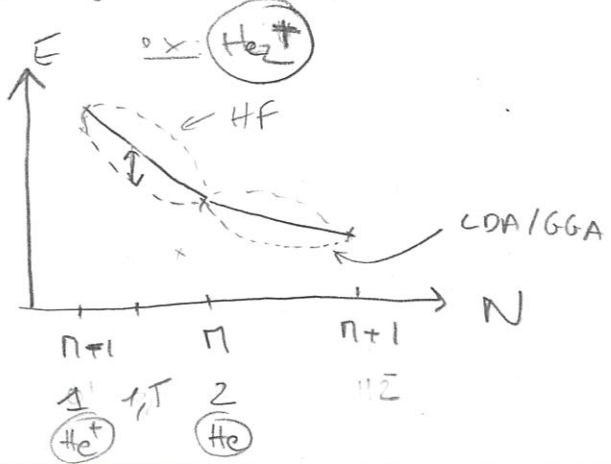 E
ex: He₂⁺
HF
LDA/GGA
N
n-1 n n+1
1 1,5 2
He⁺ He